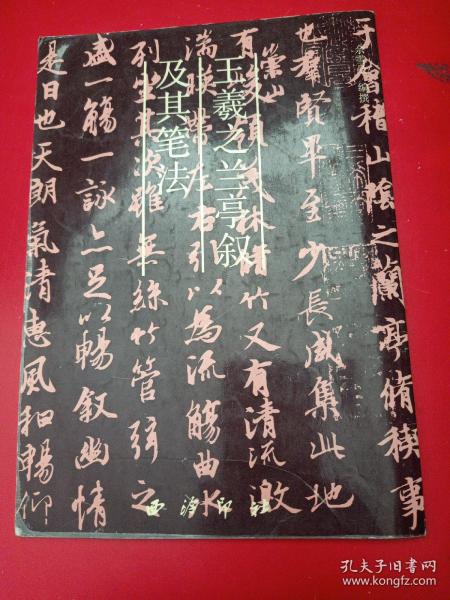 王羲之兰亭叙
及其笔法
编撰
于會稽山陰之蘭亭脩稧事
也羣賢畢至少長咸集此地
有崇山峻領茂林脩竹又有清流激
湍暎帶左右引以為流觴曲水
列坐其次雖無絲竹管弦之
盛一觴一詠亦足以暢敘幽情
是日也天朗氣清惠風和暢仰
西泠印社
孔夫子旧书网
www.kongfz.com